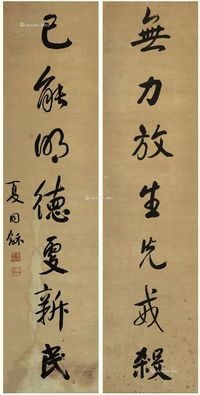 無力放生先戒殺
已能明德更新民
夏同龢